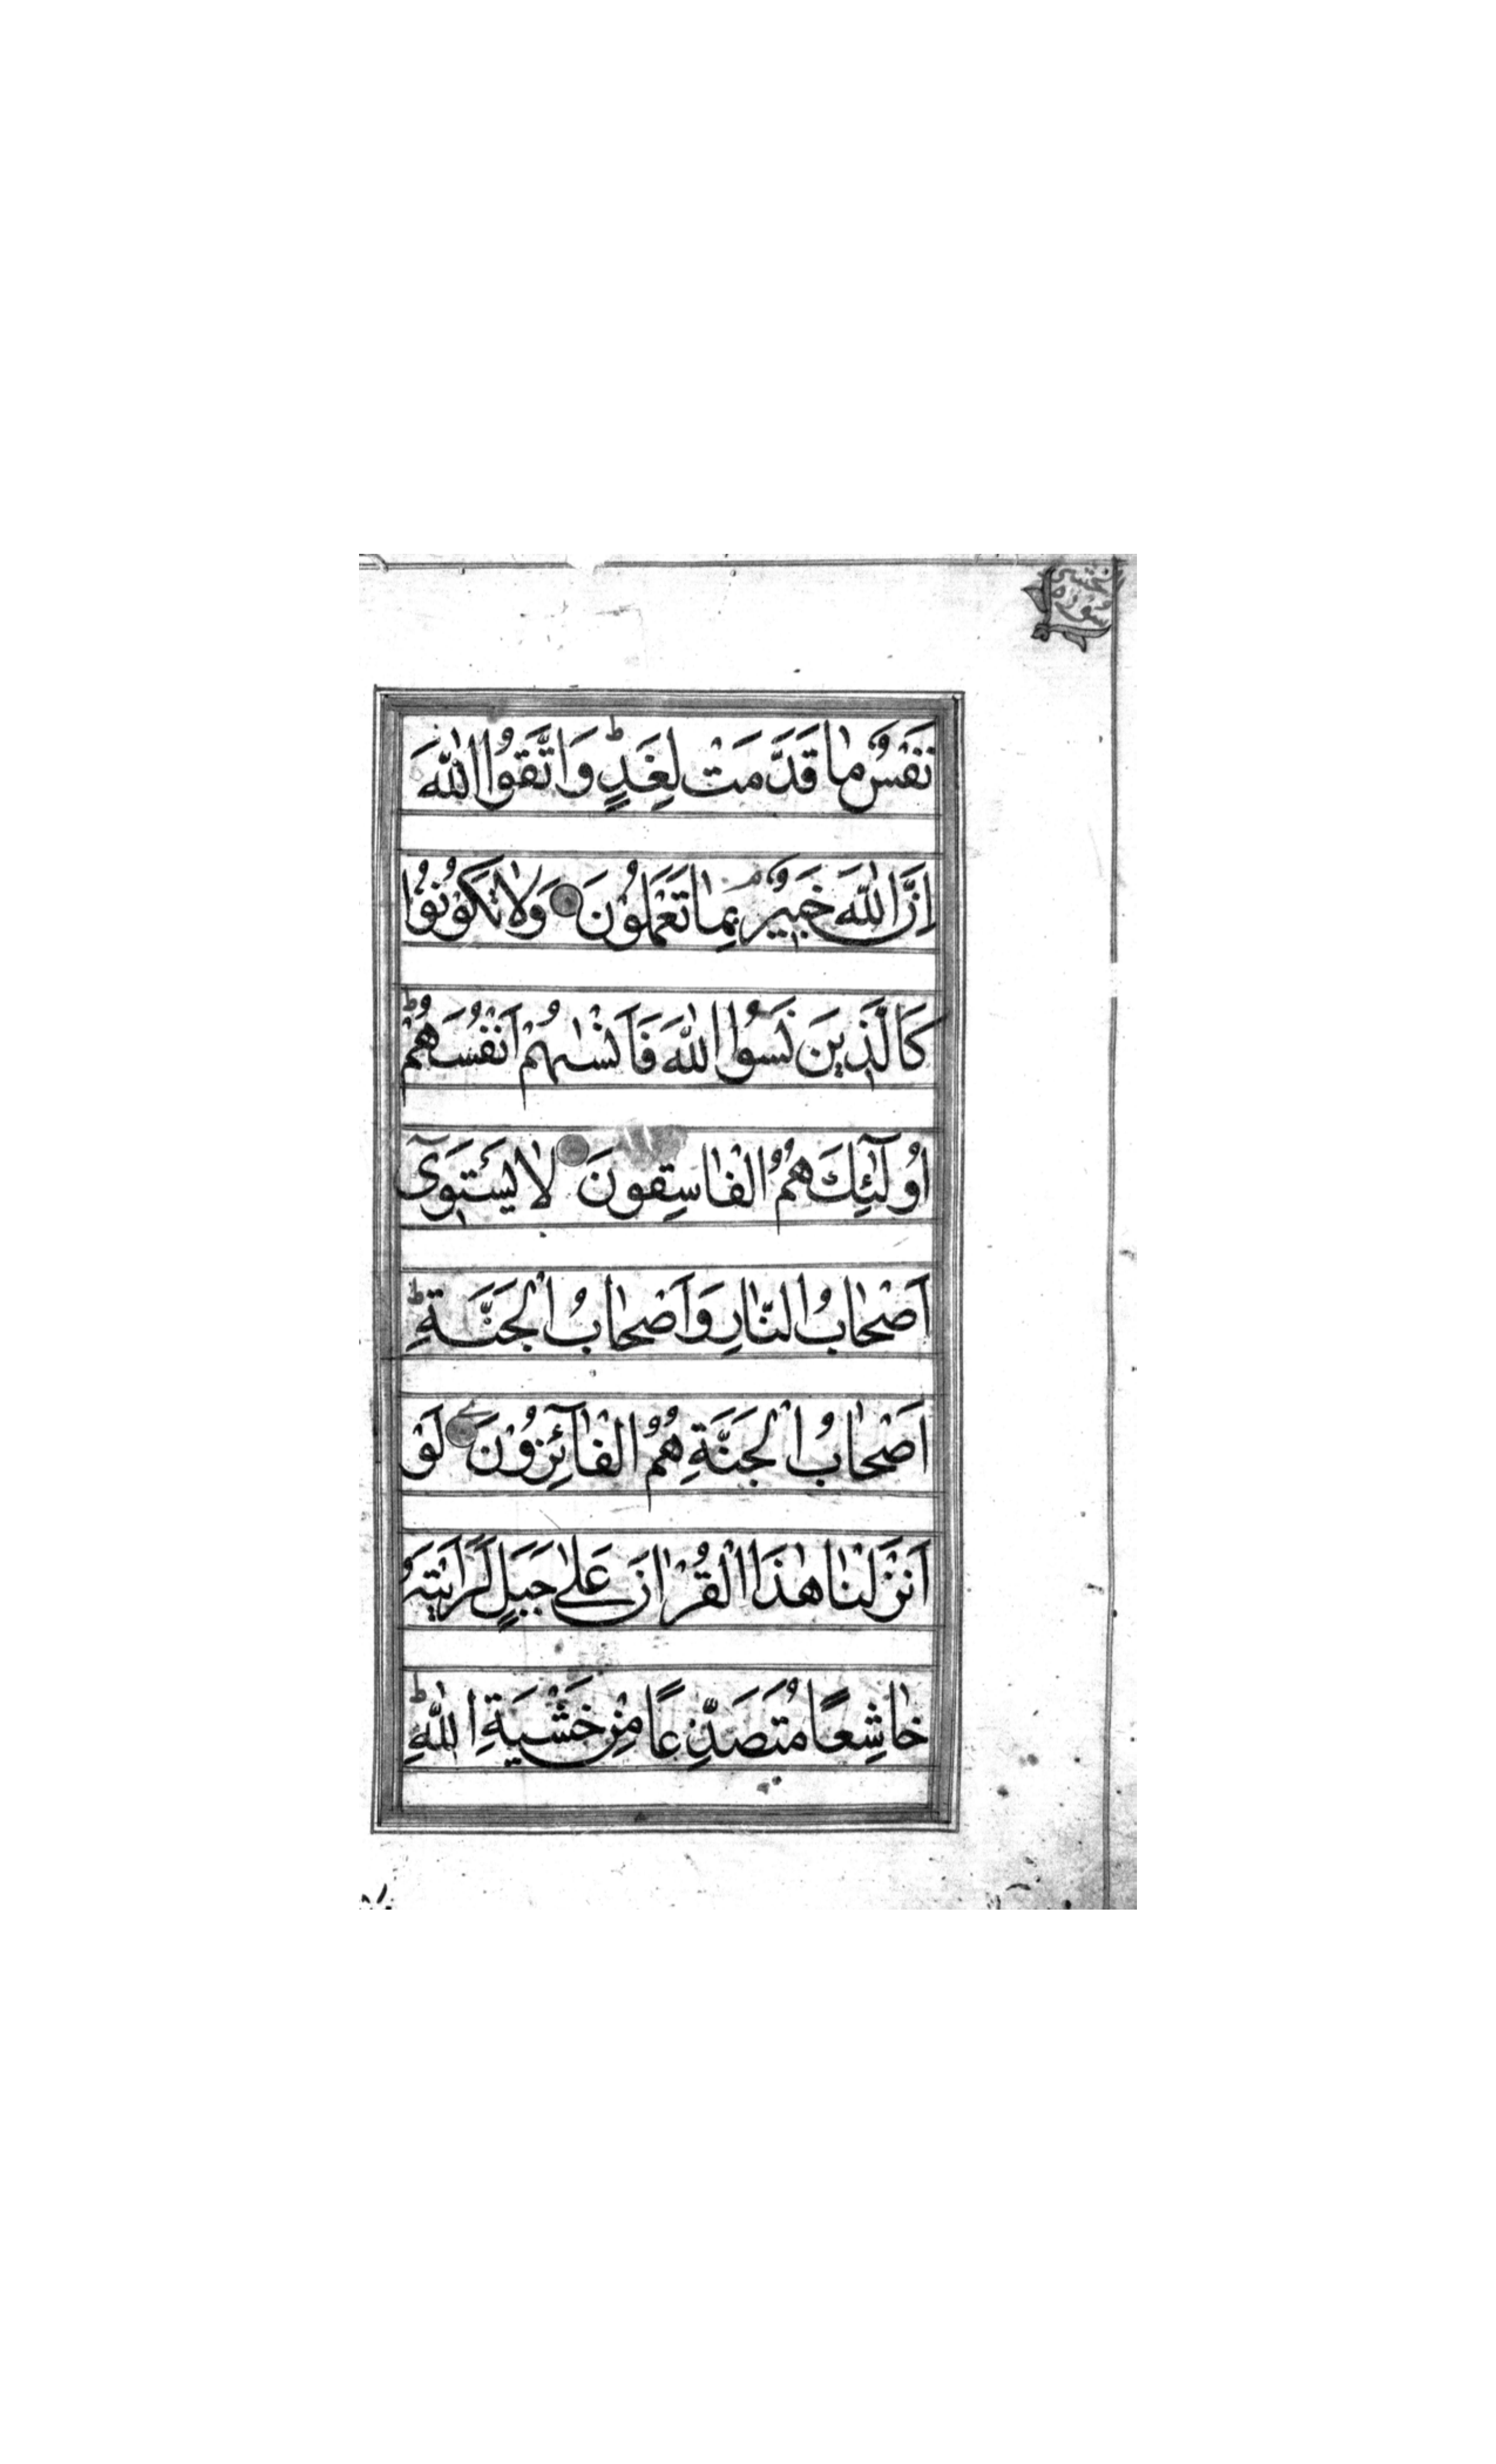 سورة
نَفْسٌ مٰا قَدَّمَتْ لِغَدٍ ۖ وَاتَّقُوا اللّٰهَ
اِنَّ اللّٰهَ خَبٖيرٌ بِمٰا تَعْمَلُوْنَ وَلاٰ تَكُوْنُوْا
كَالَّذٖينَ نَسُوا اللّٰهَ فَاَنْسٰىهُمْ اَنْفُسَهُمْ ط
اُولٰٓئِكَ هُمُ الْفٰاسِقُونَ لاٰ يَسْتَوٖىٓ
اَصْحٰابُ النّٰارِ وَاَصْحٰابُ الْجَنَّةِ ط
اَصْحٰابُ الْجَنَّةِ هُمُ الْفٰآئِزُوْنَ لَوْ
اَنْزَلْنٰا هٰذَا الْقُرْاٰنَ عَلٰى جَبَلٍ لَرَاَيْتَهُ
خٰاشِعًا مُتَصَدِّعًا مِنْ خَشْيَةِ اللّٰهِ ط